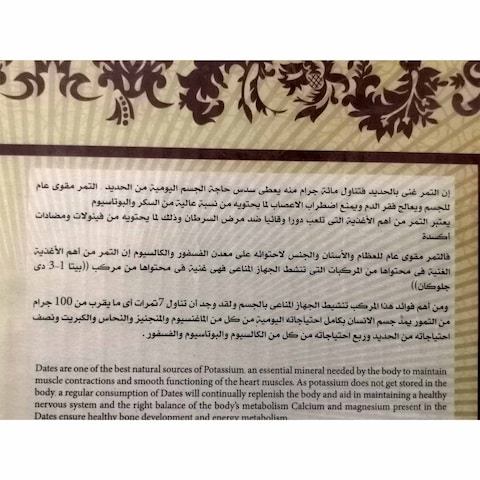 إن التمر غنى بالحديد فتناول مائة جرام منه يعطى سدس حاجة الجسم اليومية من الحديد . التمر مقوى عام
للجسم ويعالج فقر الدم ويمنع اضطراب الاعصاب لما يحتويه من نسبة عالية من السكر والبوتاسيوم
يعتبر التمر من أهم الأغذية التى تلعب دورا وقائيا ضد مرض السرطان وذلك لما يحتويه من فينولات ومضادات
أكسدة
فالتمر مقوى عام للعظام والأسنان والجنس لاحتوائه على معدن الفسفور والكالسيوم إن التمر من أهم الأغذية
الغنية فى محتواها من المركبات التى تنشط الجهاز المناعى فهى غنية فى محتواها من مركب ((بيتا 1-3 دى
جلوكان))
ومن أهم فوائد هذا المركب تنشيط الجهاز المناعى بالجسم ولقد وجد أن تناول 7تمرات أى ما يقرب من 100 جرام
من التمور يمدّ جسم الانسان بكامل احتياجاته اليومية من كل من الماغنسيوم والمنجنيز والنحاس والكبريت ونصف
احتياجاته من الحديد وربع احتياجاته من كل من الكالسيوم والبوتاسيوم والفسفور.
Dates are one of the best natural sources of Potassium, an essential mineral needed by the body to maintain
muscle contractions and smooth functioning of the heart muscles. As potassium does not get stored in the
body, a regular consumption of Dates will continually replenish the body and aid in maintaining a healthy
nervous system and the right balance of the body's metabolism Calcium and magnesium present in the
Dates ensure healthy bone development and energy metabolism